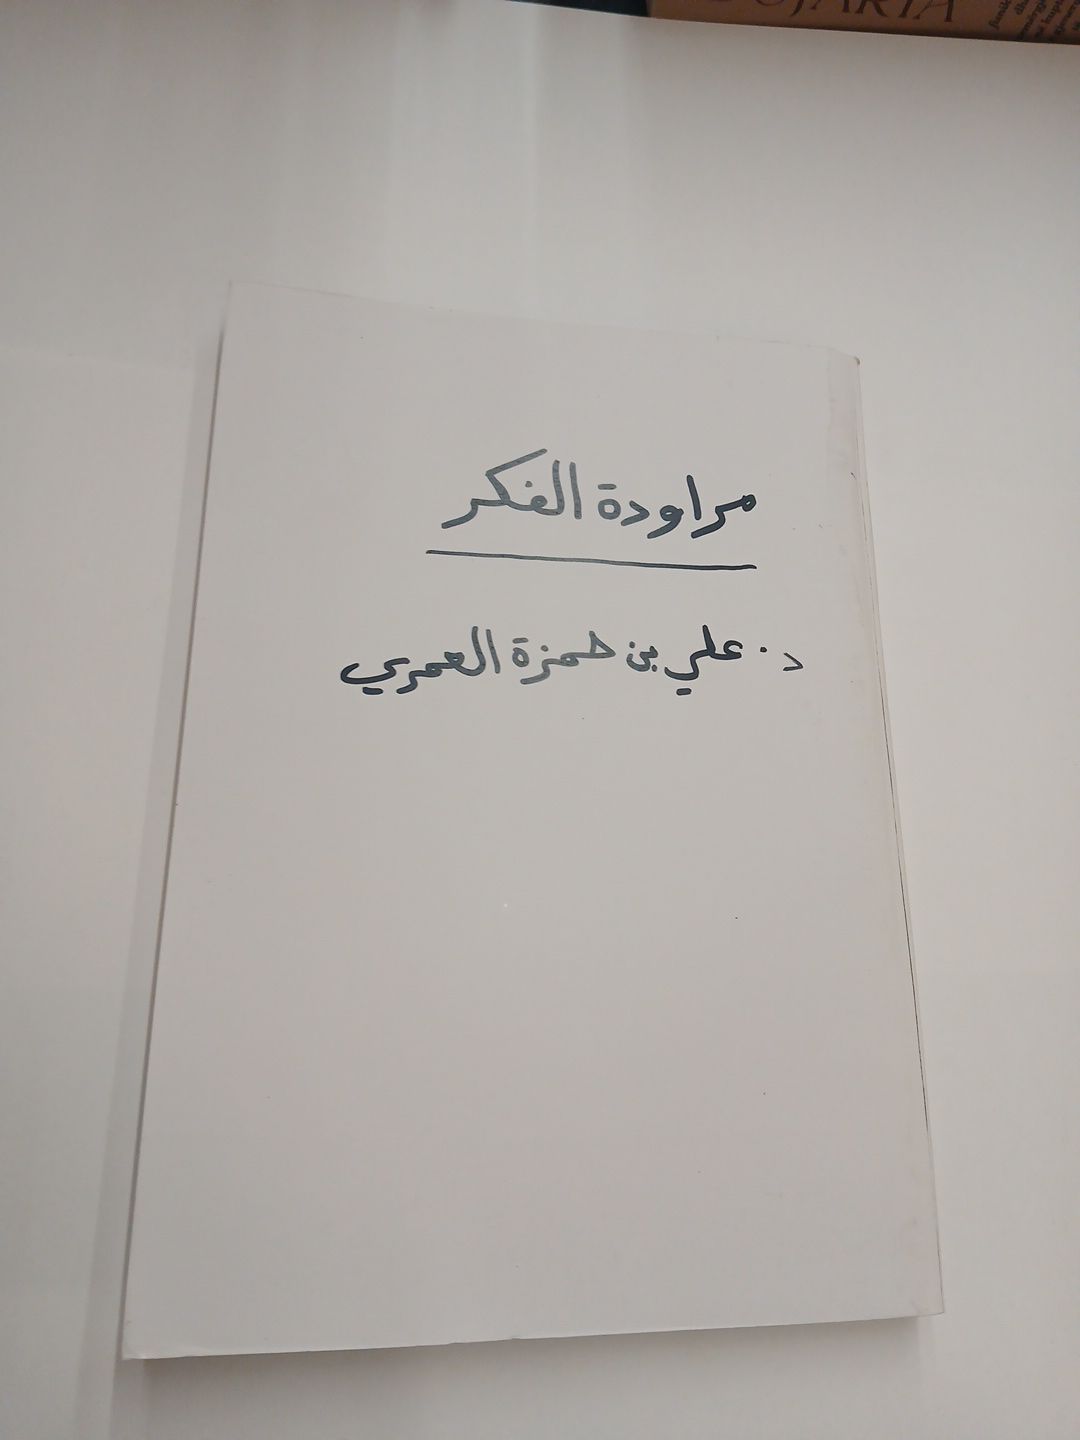 مراودة الفكر
د. علي بن حمزة العمري